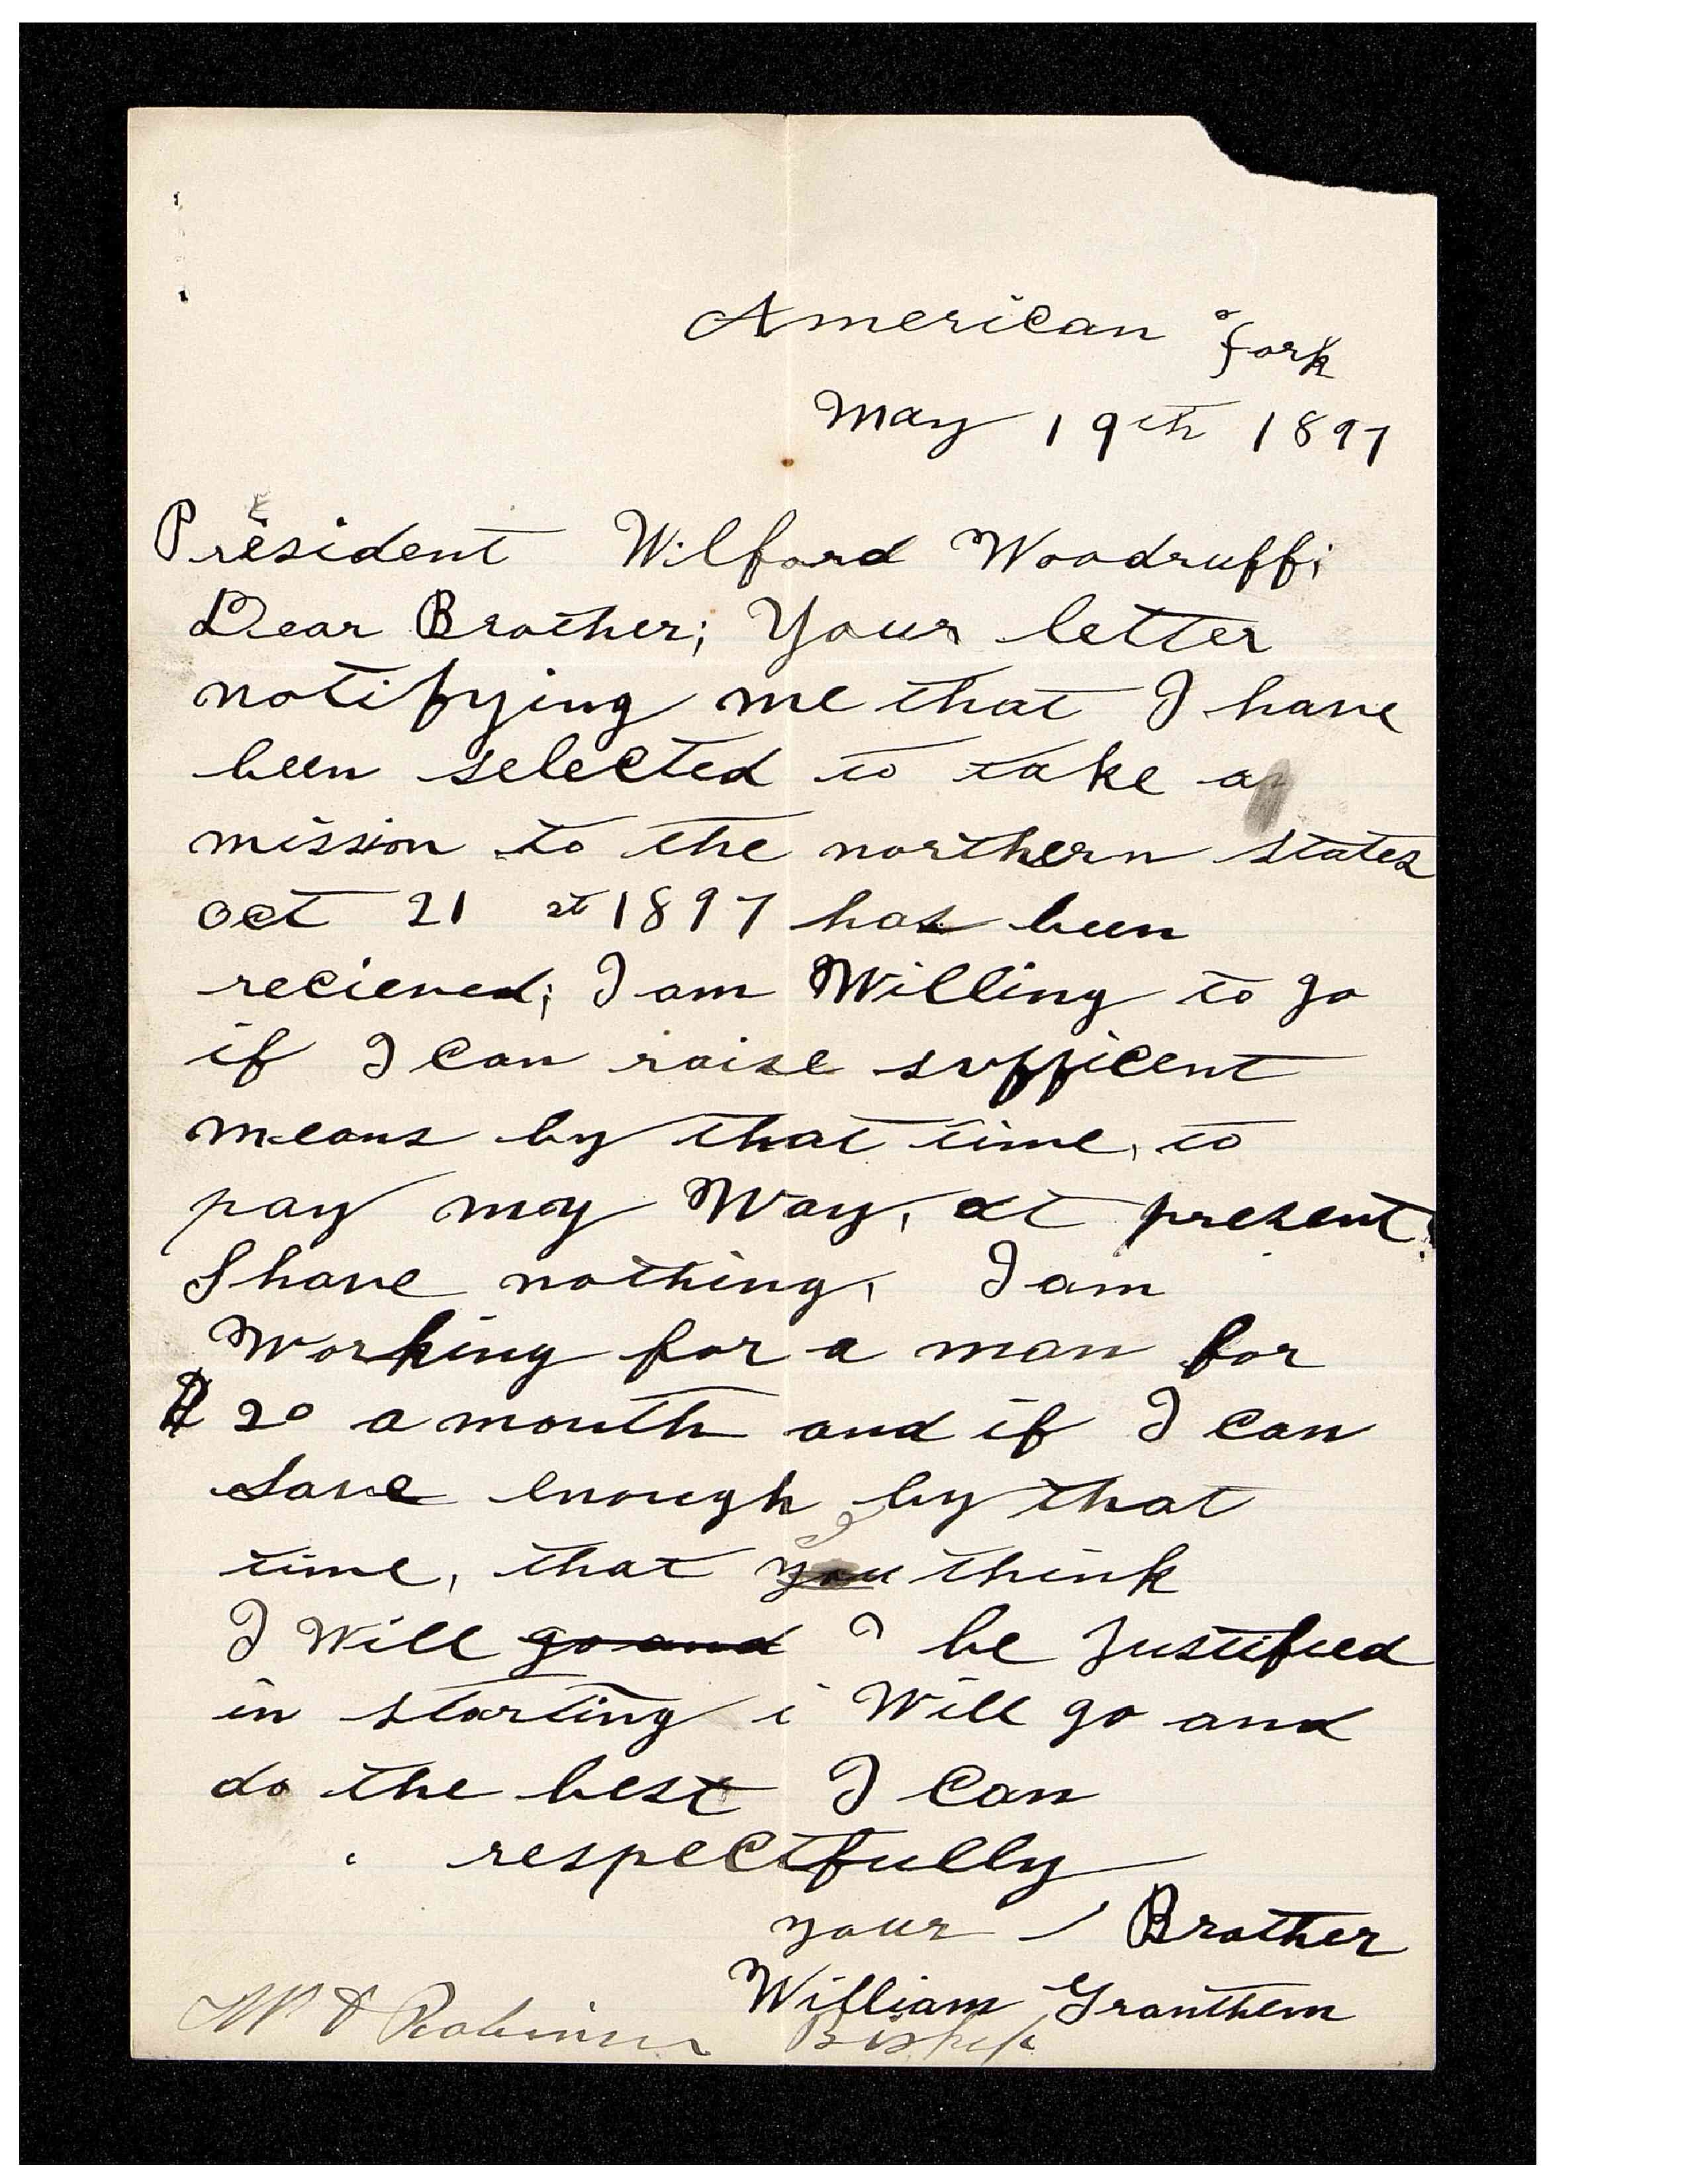 American Fork
May 19th 1897
President Wilford Woodruff;
Dear Brother; Your letter
notifying me that I have
been selected to take a
mission to the northern states
oct 21 st 1897 has been
recieved; I am Willing to go
if I can raise sufficent
means by that time, to
pay my Way, at present
I have nothing, I am
Working for a man for
$ 20 a month and if I can
save enough by that
time, that you think
I Will go and I be Justified
in starting i Will go and
do the best I can
respectfully
your Brother
William Granthem
W D Robinson Bishop